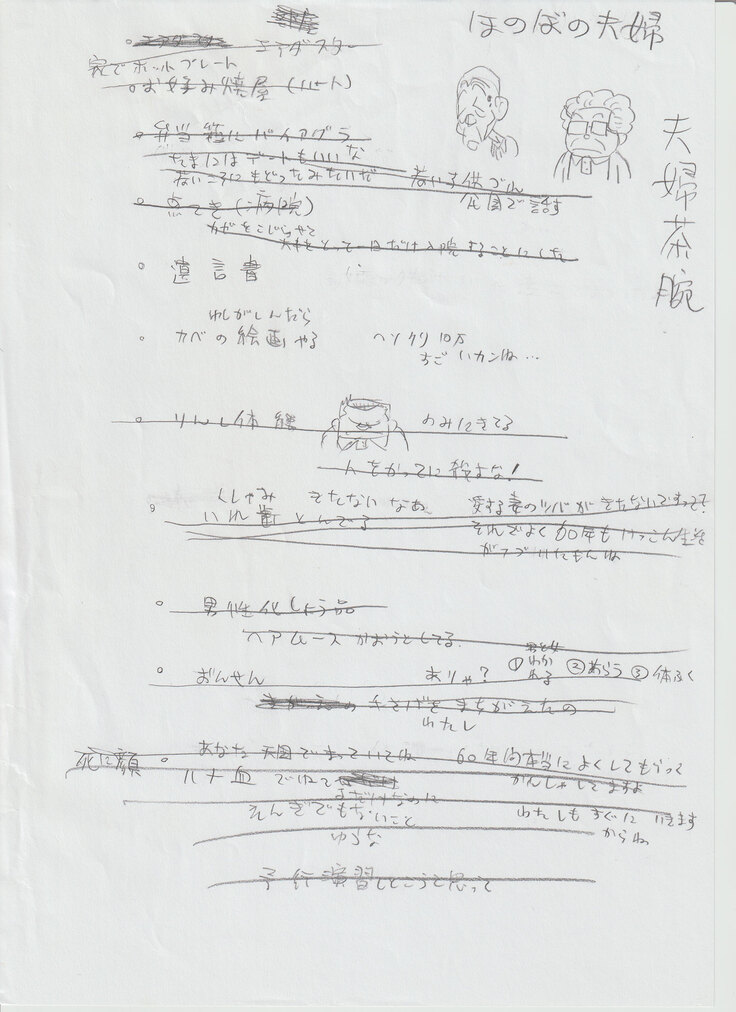 ほのぼの夫婦
夫婦茶腕
エアダスター
家でホットプレート
お好み焼屋（パート）
弁当箱にバイアグラ
たまにはデートもいいな
若い子にもどったみたいだ
若い子供づれ
公園で話す
点てき（病院）
カゼをこじらせて
大事をとって一日だけ入院することにした
遺言書
わしがしんだら
カベの絵画やる
ヘソクリ10万
ちごいカンね…
りんし体験
のみにきてる
人をかってに殺すな!
くしゃみ きたないなあ
いれ歯 とんでる
愛する妻のツバがきたないですって?
それでよく60年もけっこん生活
がつづけたもんね
男性化しょう品
ヘアムースかおうとしてる
おんせん
ありゃ?
男と女
①わかれる ②あらう ③体ふく
まちがえたの
わたし
死に顔
あなた天国でまっていてね
60年間本当によくしてもらって
かんしゃしてますよ
ハナ血 でねて
まだはやいのに
えんぎでもないこと
ゆうな
わたしもすぐにいきます
からね
予行演習しとこうと思って